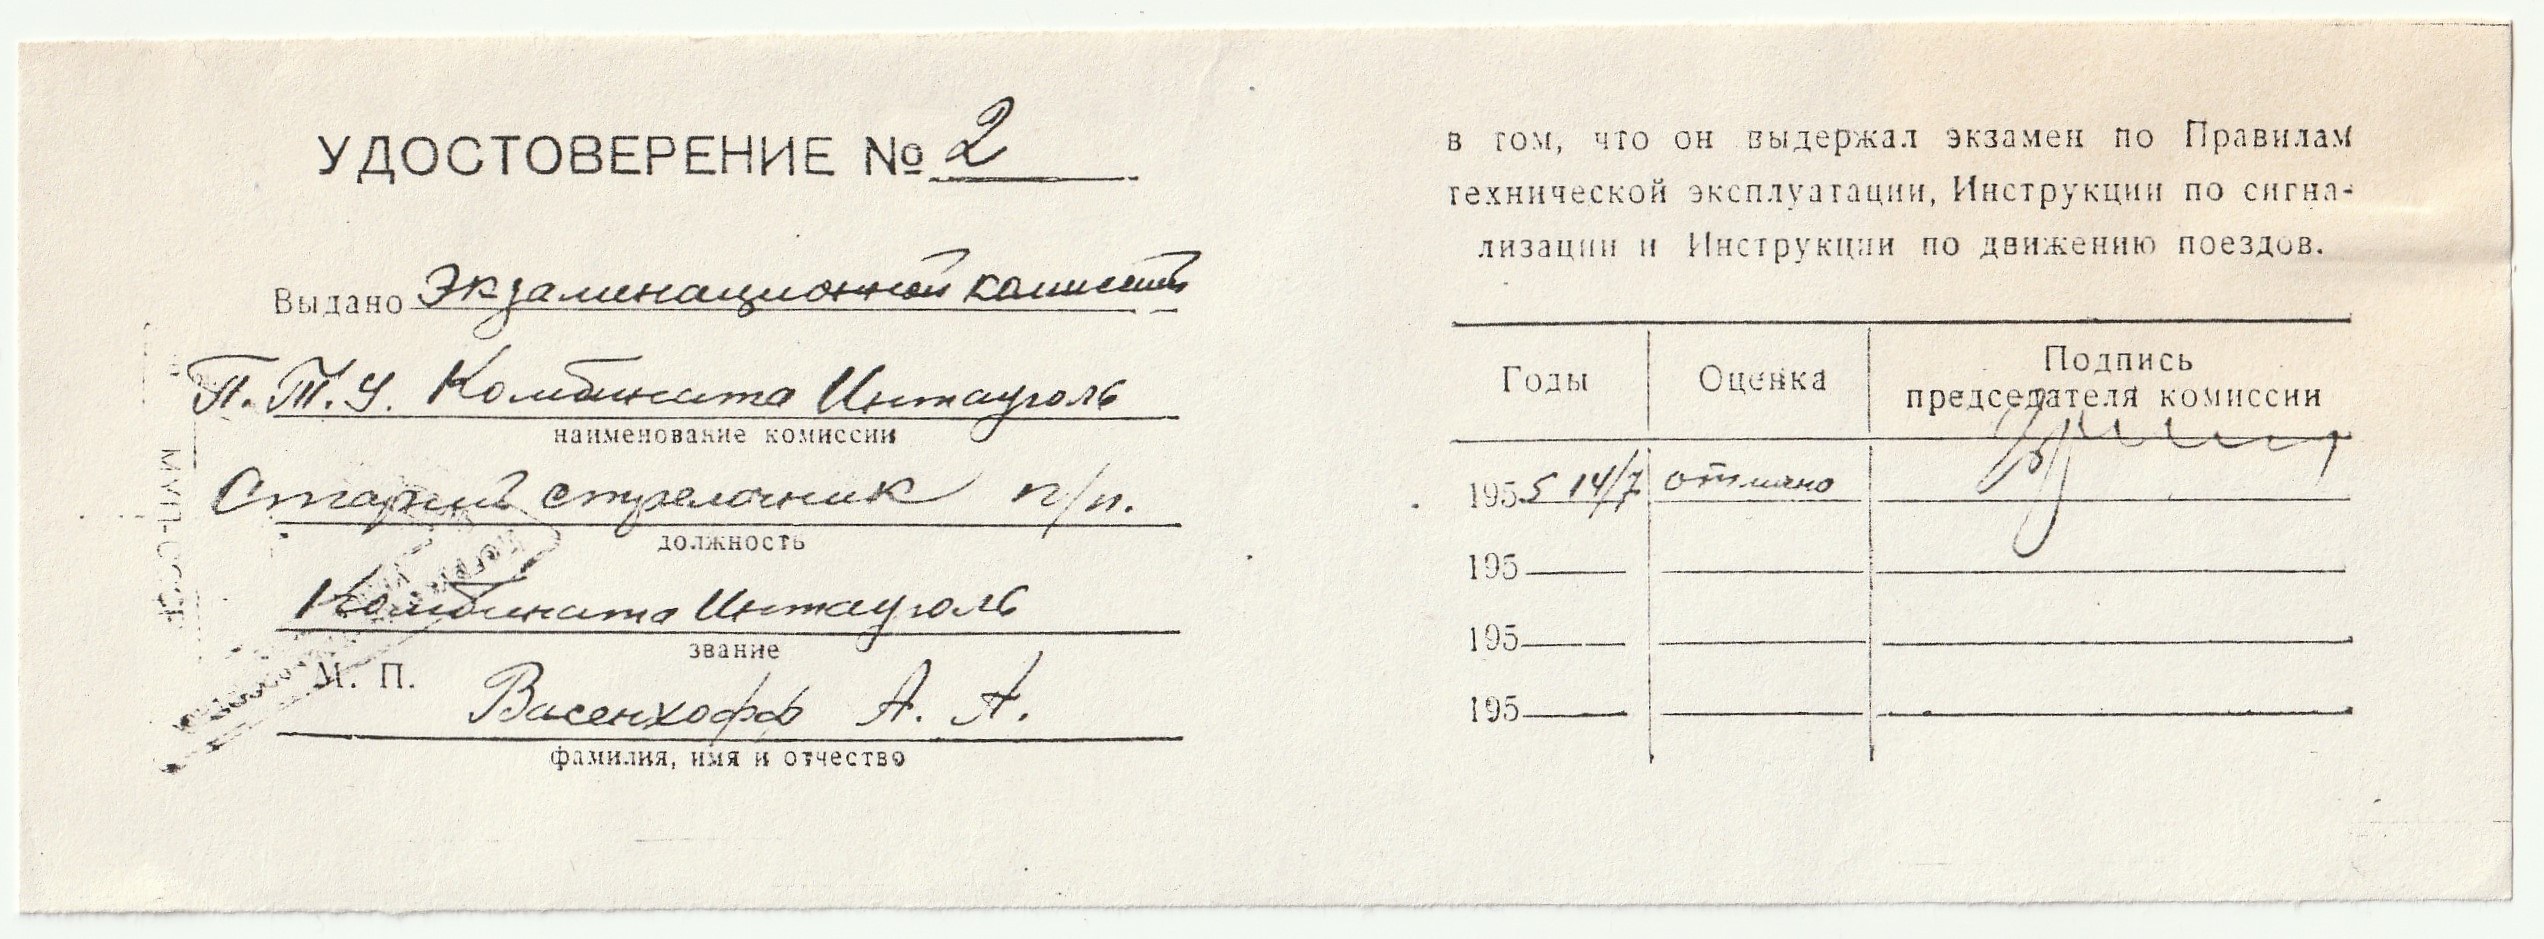 УДОСТОВЕРЕНИЕ № 2
Выдано Экзаменационной комиссией
П.Т.У. Комбината Интауголь
наименование комиссии
Старший стрелочник п/п.
должность
Комбината Интауголь
звание
М. П.
Васенхофф А. А.
фамилия, имя и отчество
МУП-СССР
в том, что он выдержал экзамен по Правилам
технической эксплуатации, Инструкции по сигна-
лизации и Инструкции по движению поездов.
Годы Оценка Подпись
председателя комиссии
1955 14/7 отлично
195
195
195